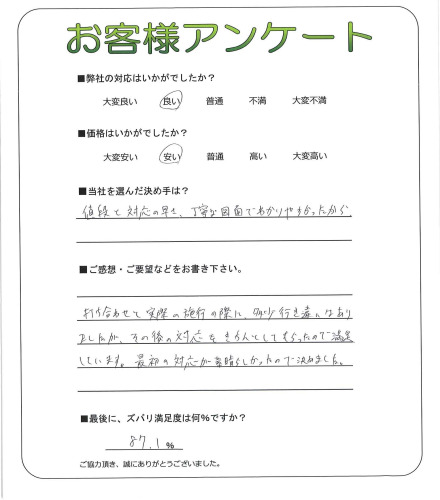 お客様アンケート
■弊社の対応はいかがでしたか?
大変良い 良い 普通 不満 大変不満
■価格はいかがでしたか?
大変安い 安い 普通 高い 大変高い
■当社を選んだ決め手は?
値段と対応の早さ、丁寧な図面でわかりやすかったから
■ご感想・ご要望などをお書き下さい。
打ち合わせと実際の施行の際に、多少行き違いはあり
ましたが、その後の対応をきちんとしてもらったので満足
しています。最初の対応が素晴らしかったので決めました。
■最後に、ズバリ満足度は何%ですか?
87.1%
ご協力頂き、誠にありがとうございました。